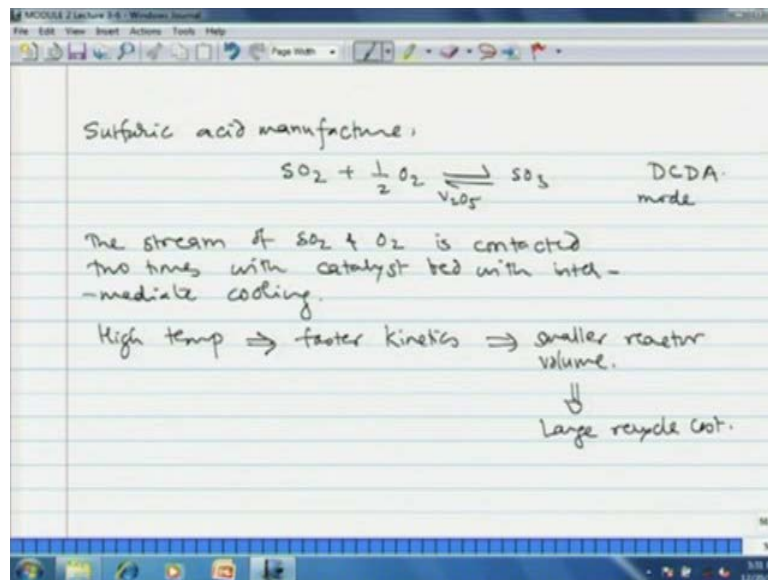 MODULE 2 Lecture 3-6 - Windows Journal
File Edit View Insert Actions Tools Help
Page Width
Sulfuric acid manufacture,
SO2 + 1/2 O2 ⇌ SO3 DCDA.
V2O5 mode
The stream of SO2 & O2 is contacted
two times with catalyst bed with inter-
-mediate cooling.
High temp ⇒ faster kinetics ⇒ smaller reactor
volume.
⇓
Large recycle cost.